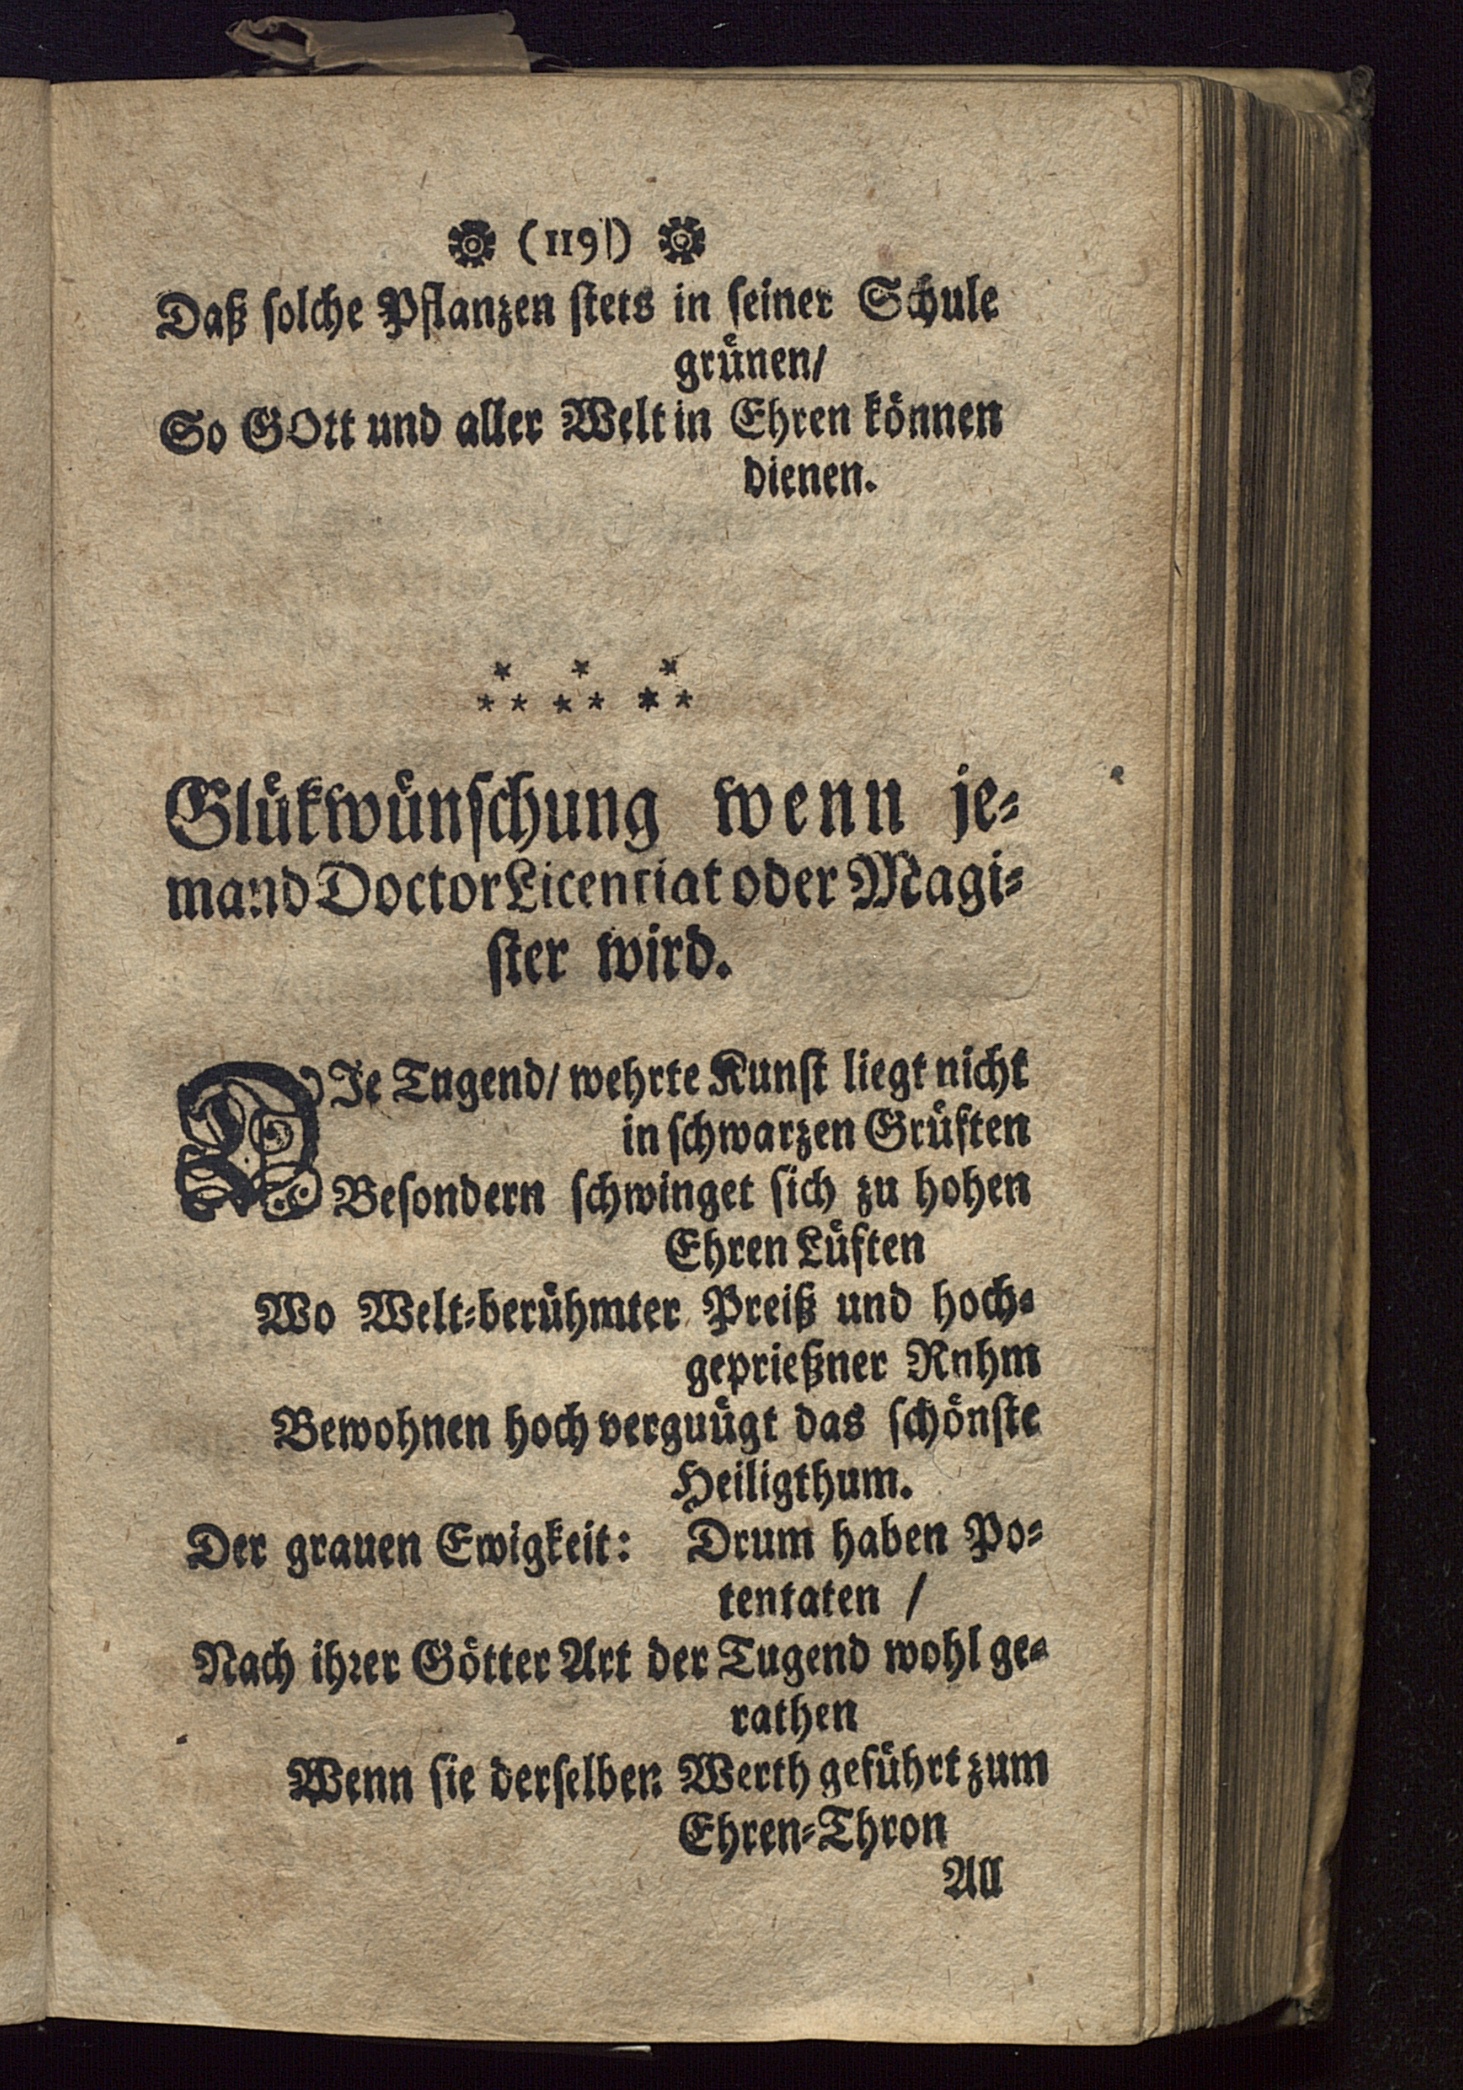 (119)
Daß solche Pflanzen stets in seiner Schule
grünen/
So GOtt und aller Welt in Ehren können
dienen.
* * *
* * * * * *
Glükwünschung wenn je-
mand Doctor Licentiat oder Magi-
ster wird.
DIe Tngend/ wehrte Kunst liegt nicht
in schwarzen Grüften
Besondern schwinget sich zu hohen
Ehren Lüften
Wo Welt-berühmter Preiß und hoch-
geprießner Rnhm
Bewohnen hoch verguügt das schönste
Heiligthum.
Der grauen Ewigkeit: Drum haben Po-
tentaten /
Nach ihrer Götter Art der Tugend wohl ge-
rathen
Wenn sie derselben Werth geführt zum
Ehren-Thron
All